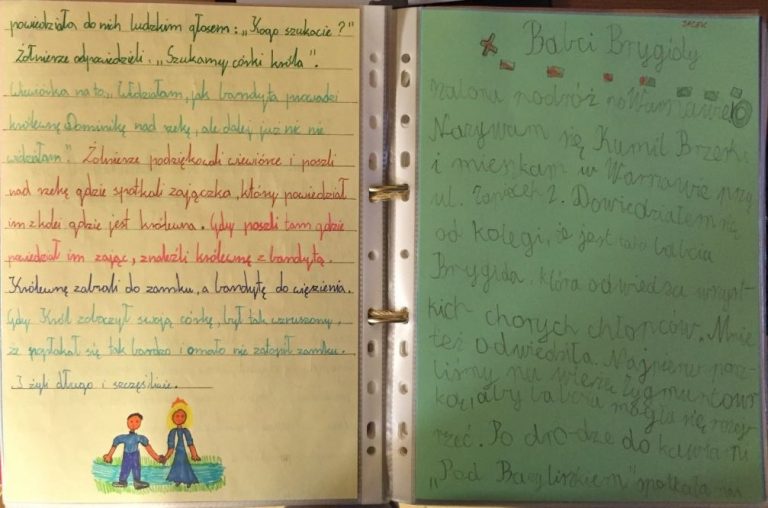 powiedziała do nich ludzkim głosem: „Kogo szukacie?”
Żołnierze odpowiedzieli: „Szukamy córki króla”.
Wiewiórka na to „Widziałam, jak bandyta prowadzi
królewnę Dominikę nad rzekę, ale dalej już nic nie
widziałam” Żołnierze podziękowali wiewiórce i poszli
nad rzekę gdzie spotkali zajączka, który powiedział
im z kolei gdzie jest królewna. Gdy poszli tam gdzie
powiedział im zając, znaleźli królewnę z bandytą.
Królewnę zabrali do zamku, a bandytę do więzienia.
Gdy Król zobaczył swoją córkę, był tak wzruszony,
że popłakał się tak bardzo i omało nie zatopił zamku.
I żyli długo i szczęśliwie.
Babci Brygidy
szalona podróż po
Nazywam się Kamil
i mieszkam w Warszawie przy
ul. 2. Dowiedziałem się
od kolegi, że jest taka babcia
Brygida, która odwiedza wszyst-
kich chorych chłopców. Mnie
też odwiedziła. Najpierw posz-
liśmy na wieżę
aby babcia mogła się rozej-
rzeć. Po dro-dze do kawiarni
„Pod Bazyliszkiem” spotkała